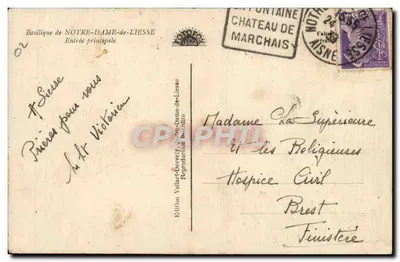 Basilique de NOTRE-DAME-de-LIESSE
Entrée principale
02
Prières pour vous
Edition Vallart-Deresy, Notre-Dame-de-Liesse
Reproduction interdite
FONTAINE
CHATEAU DE
MARCHAIS
NOTRE
LIESSE
24
AISNE
Madame La Supérieure
Et les Religieuses
Hospice Civil
Brest
Finistère
CPARAMA